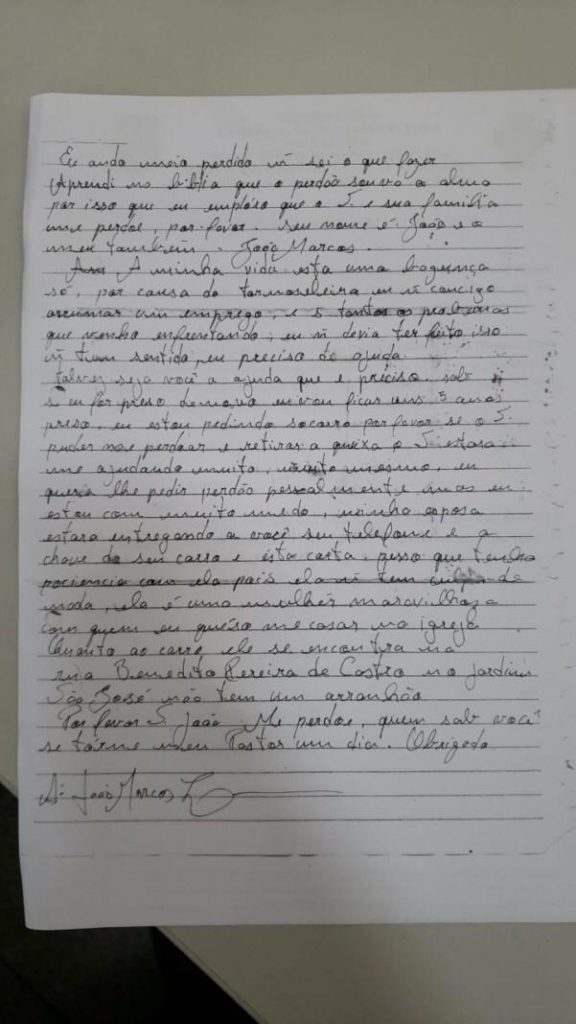 Eu ando meio perdido ñ sei o que fazer
Aprendi na biblia que o perdão souva a alma
por isso que eu emploso que o S. e sua familia
me perdoe, por favor. seu nome é João e o
meu tambem. João Marcos.
A minha vida esta uma bagunça
só, por causa da tornoseleira eu ñ concigo
arrumar um emprego, e S tantos os problemas
que venho enfrentando, eu ñ devia ter feito isso
ñ tem sentido, eu preciso de ajuda.
talvez seja você a ajuda que e preciso. sab
se eu for preso denovo eu vou ficar uns 5 anos
preso, eu estou pedindo socorro por favor se o S.
puder me perdoar e retirar a queixa o S. estara
me ajudando muito, muito mesmo, eu
queria lhe pedir perdão pessoalmente mas eu
estou com muito medo, minha esposa
estara entregando a você seu telefone e a
chave do seu carro e esta carta. pesso que tenha
paciencia com ela pois ela ñ tem culpa de
nada, ela é uma mulher maravilhosa
com quem eu quéso me casar na igreja
Quanto ao carro, ele se encontra na
rua Benedito Pereira de Castro no jardim
São José não tem um arranhão
Por favor S. João Me perdoe, quem sab você
se torne meu Pastor um dia. Obrigado
A: João Marcos